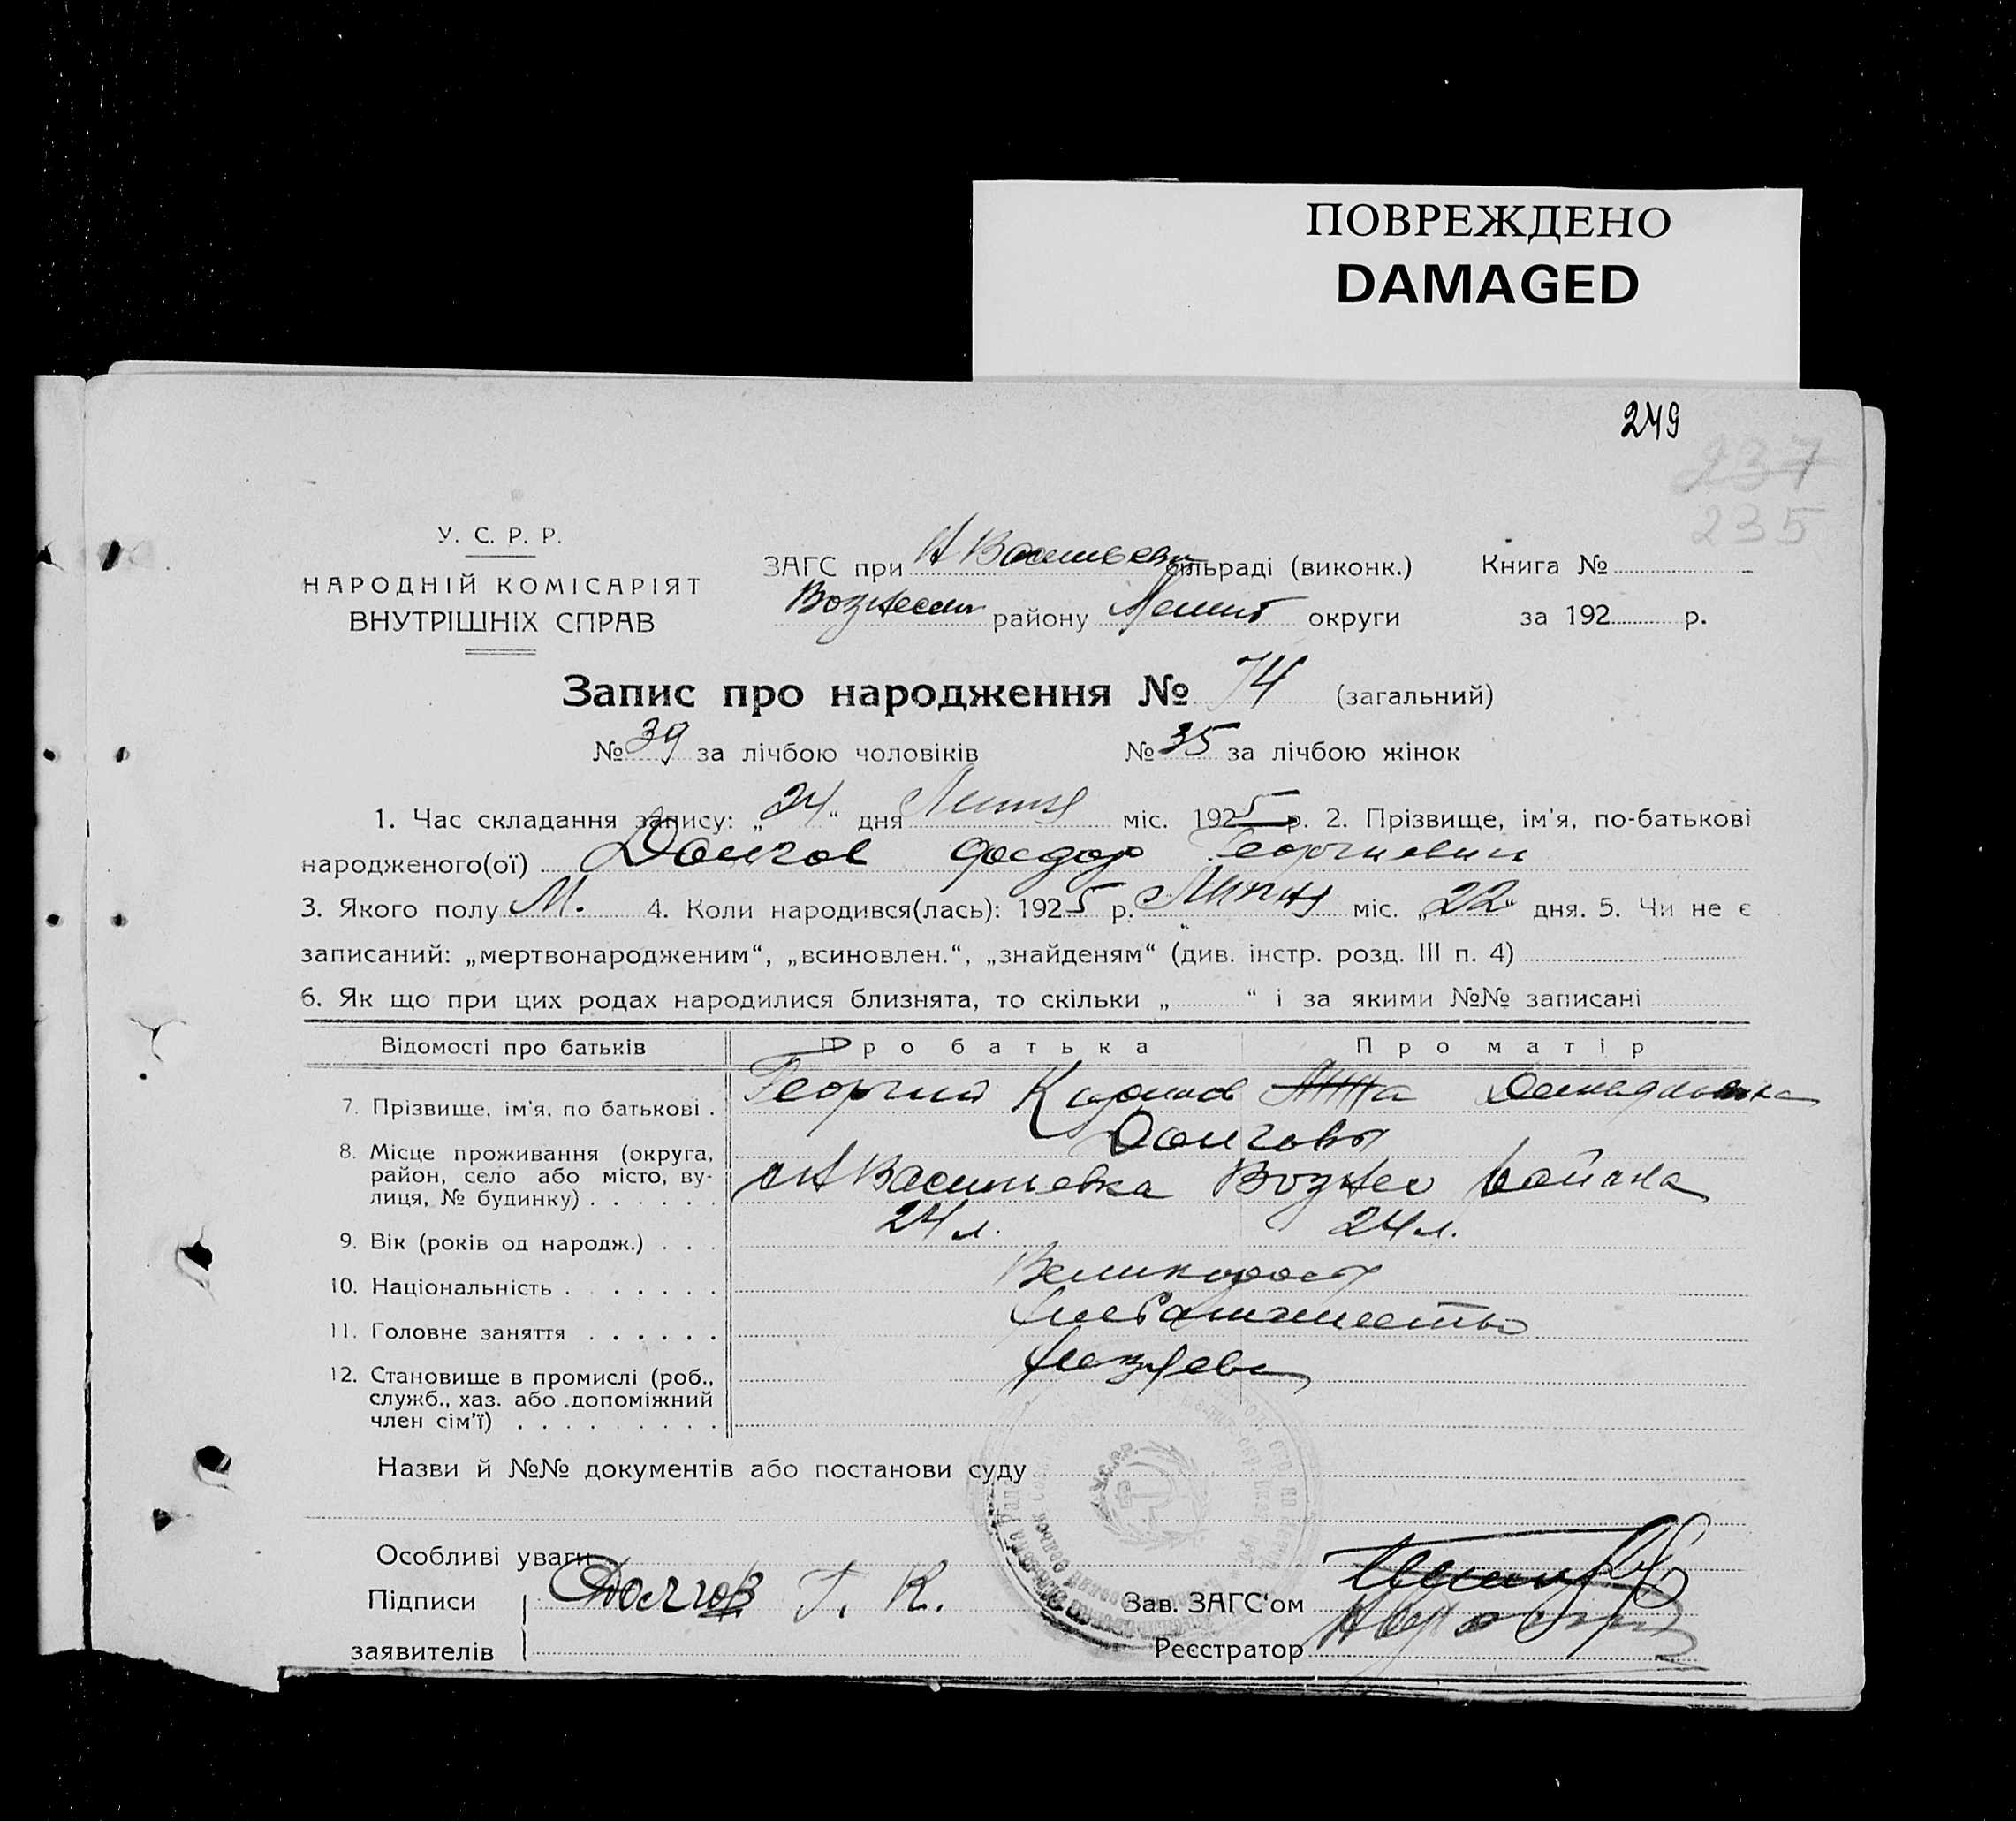 ПОВРЕЖДЕНО
DAMAGED
249
237
235
У. С. Р. Р.
НАРОДНІЙ КОМІСАРІЯТ
ВНУТРІШНІХ СПРАВ
ЗАГС при Н Васильевк сільраді (виконк.) Книга №
Вознесен району округи за 192 р.
Запис про народження № 74 (загальний)
№ 39 за лічбою чоловіків № 35 за лічбою жінок
1. Час складання запису: „24“ дня Липня міс. 1925 р. 2. Прізвище, ім'я, по-батькові
народженого(ої) Долгов Федор Георгиевич
3. Якого полу М. 4. Коли народився(лась): 1925 р. Липня міс. „22“ дня. 5. Чи не є
записаний: „мертвонародженим“, „всиновлен.“, „знайденям“ (див. інстр. розд. III п. 4)
6. Як що при цих родах народилися близнята, то скільки „ “ і за якими №№ записані
Відомості про батьків Про батька Про матір
7. Прізвище, ім'я, по батькові . Георгий
Долговы
8. Місце проживання (округа,
район, село або місто, ву-
лиця, № будинку) . . . . . . Н Васильевка Вознес района
9. Вік (років од народж.) . . . 24 л. 24 л.
10. Національність . . . . . . . Великоросы
11. Головне заняття . . . . . . хлебопашество
12. Становище в промислі (роб., хозяева
служб., хаз. або допоміжний
член сім'ї) . . . . . . . . .
Назви й №№ документів або постанови суду
У.С.Р.Р.
Особливі уваги
Підписи Долгов Г. К. Зав. ЗАГС'ом
заявителів Реєстратор